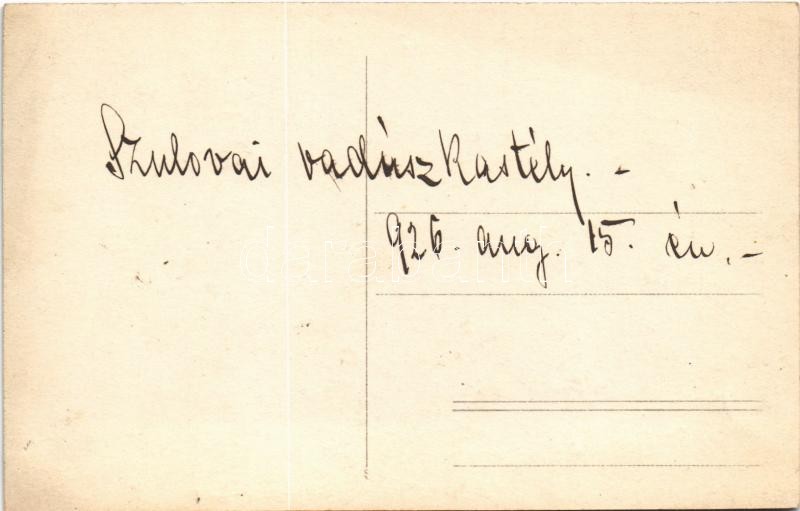 Szulovai vadászkastély. -
926. aug. 15. én. -